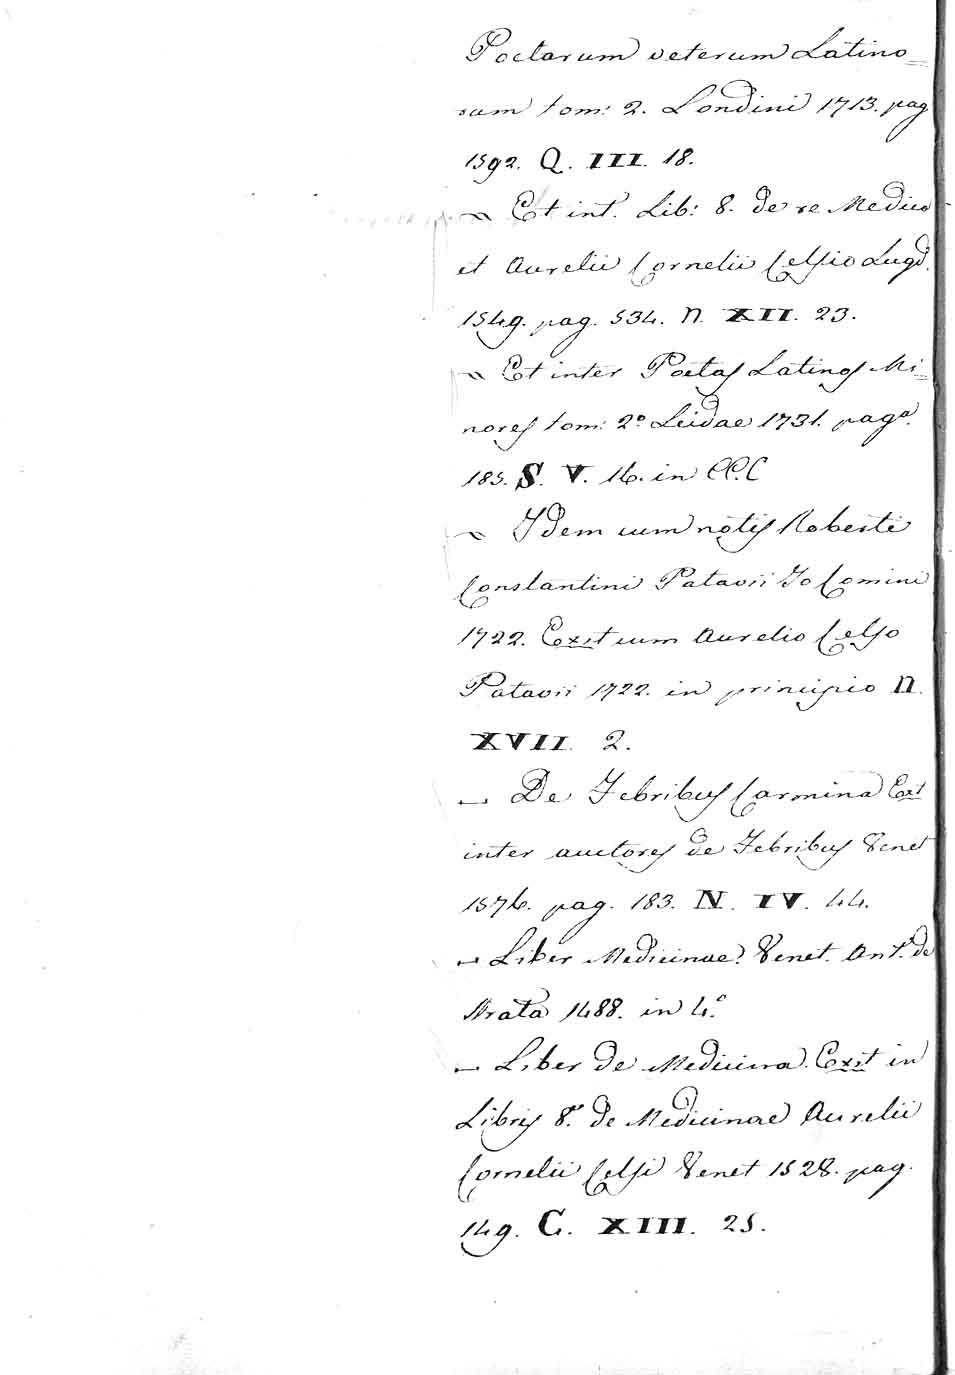 Poetarum veterum Latino=
rum tom: 2. Londini 1713. pag
1592. Q. III. 18.
~ Et int.r Lib: 8. de re Medica
et Aurelii Cornelii Celsio Lugd.
1549. pag. 534. N. XII. 23.
~ Et inter Poetas Latinos Mi=
nores tom: 2º Leidae 1731. pagª.
185. S. V. 16. in CC.C
~ Idem cum notis Roberti
Constantini Patavii Jo Comini
1722. Exit cum Aurelio Celso
Patavii 1722. in principio N.
XVII. 2.
— De Febribus Carmina Ext
inter auctores de Febribus Venet
1576. pag. 183. N. IV. 44.
— Liber Medicinae. Venet. Ant.s de
Strata 1488. in 4.º
— Liber de Medicina. Exit in
Libris 8.º de Medicinae Aurelii
Cornelii Celsi Venet 1528. pag.
149. C. XIII. 25.